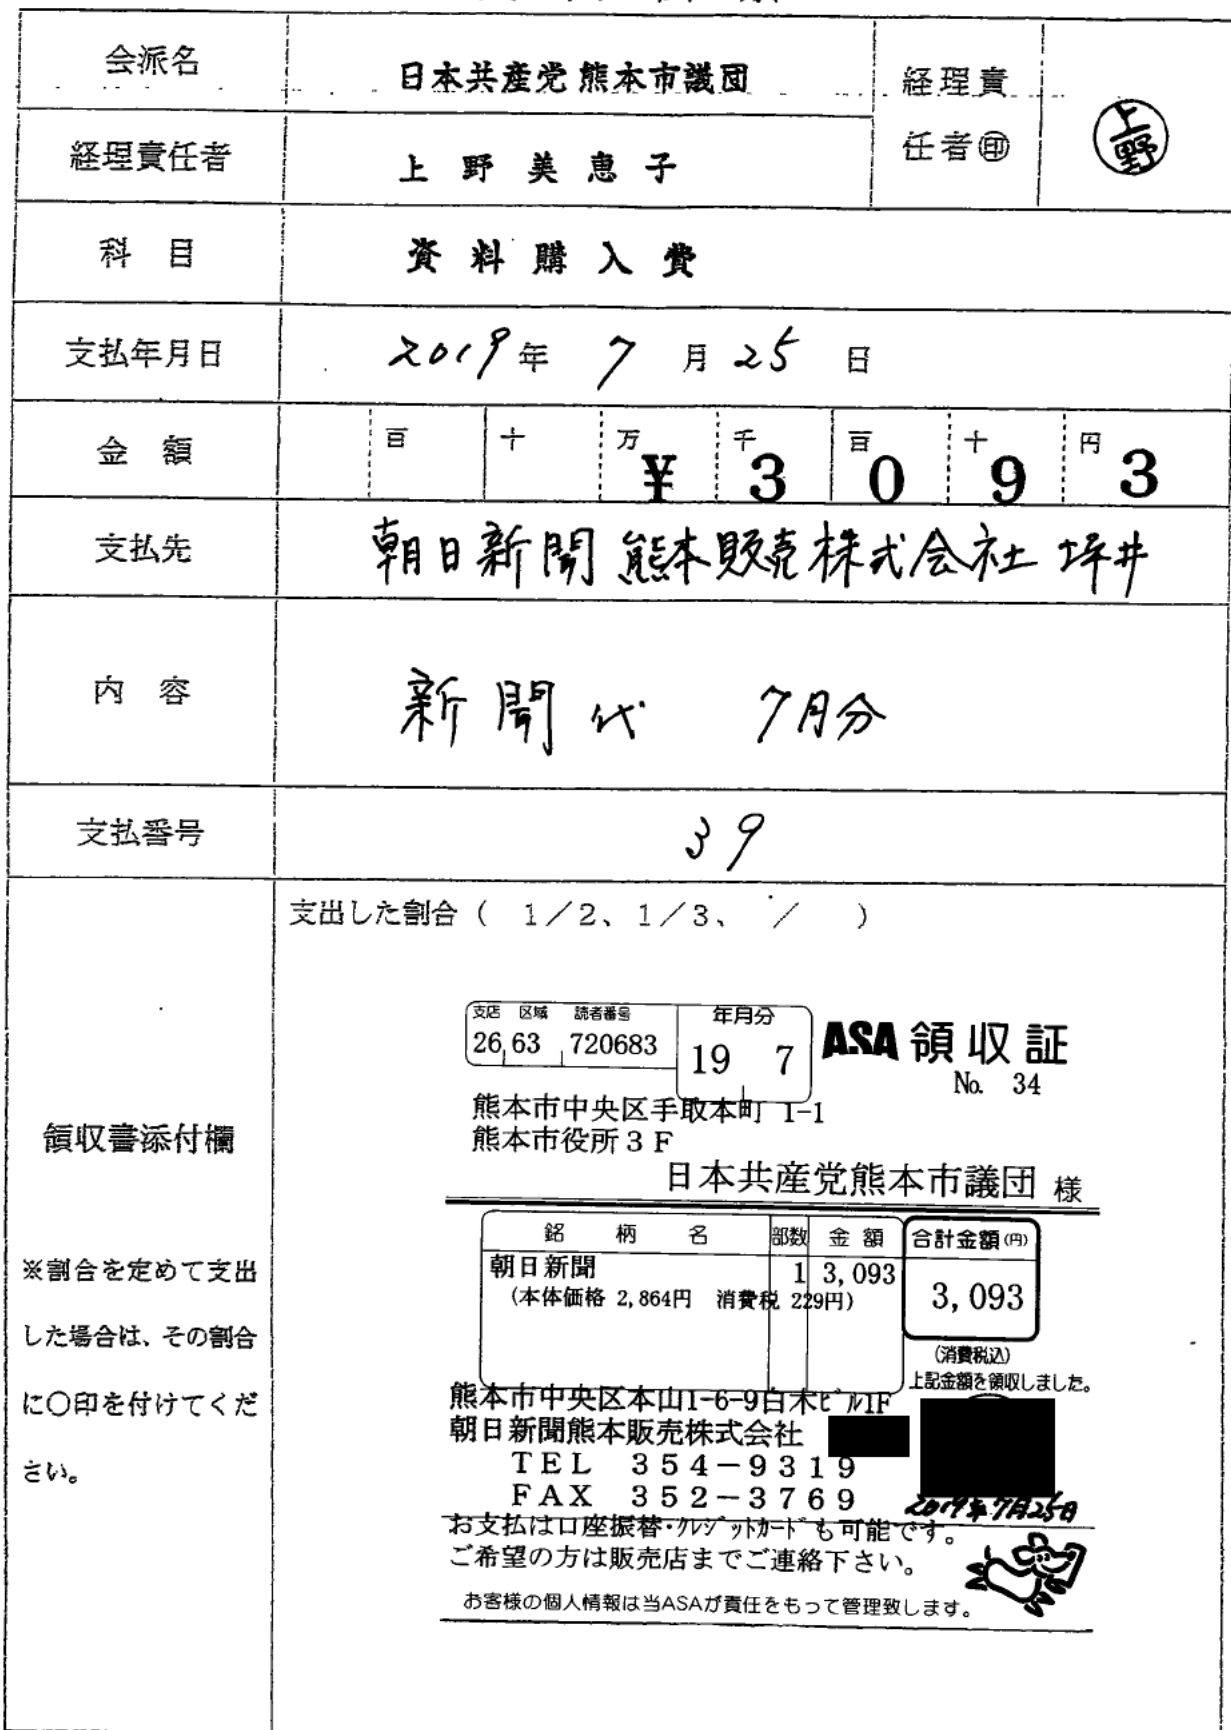 会派名 日本共産党熊本市議団 経理責任者㊞ 上野
経理責任者 上野美恵子
科目 資料購入費
支払年月日 2019年 7月25日
金額 百 十 万 千 百 十 円
¥3093
支払先 朝日新聞熊本販売株式会社 坪井
内容 新聞代 7月分
支払番号 39
支出した割合( 1/2、1/3、 / )
領収書添付欄
※割合を定めて支出
した場合は、その割合
に○印を付けてくだ
さい。
支店 区域 読者番号 年月分
26 63 720683 19 7
ASA 領収証
No. 34
熊本市中央区手取本町 1-1
熊本市役所3F
日本共産党熊本市議団 様
銘柄名 部数 金額 合計金額(円)
朝日新聞 1 3,093 3,093
(本体価格 2,864円 消費税 229円)
(消費税込)
上記金額を領収しました。
熊本市中央区本山1-6-9白木ビル1F
朝日新聞熊本販売株式会社
TEL 354-9319
FAX 352-3769
2019年7月25日
お支払は口座振替・クレジットカードも可能です。
ご希望の方は販売店までご連絡下さい。
お客様の個人情報は当ASAが責任をもって管理致します。